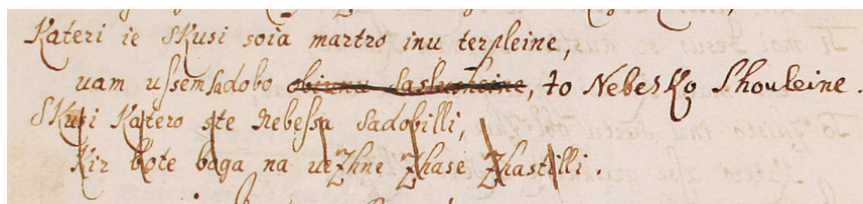 Kateri ie skusi soia martro inu terpleine,
uam ussem sadobo obiunu saslusheine, to Nebesko Shouleine.
Skusi Katero ste Nebessa sadobilli,
Kir bote boga na uezhne Zhase Zhastilli.